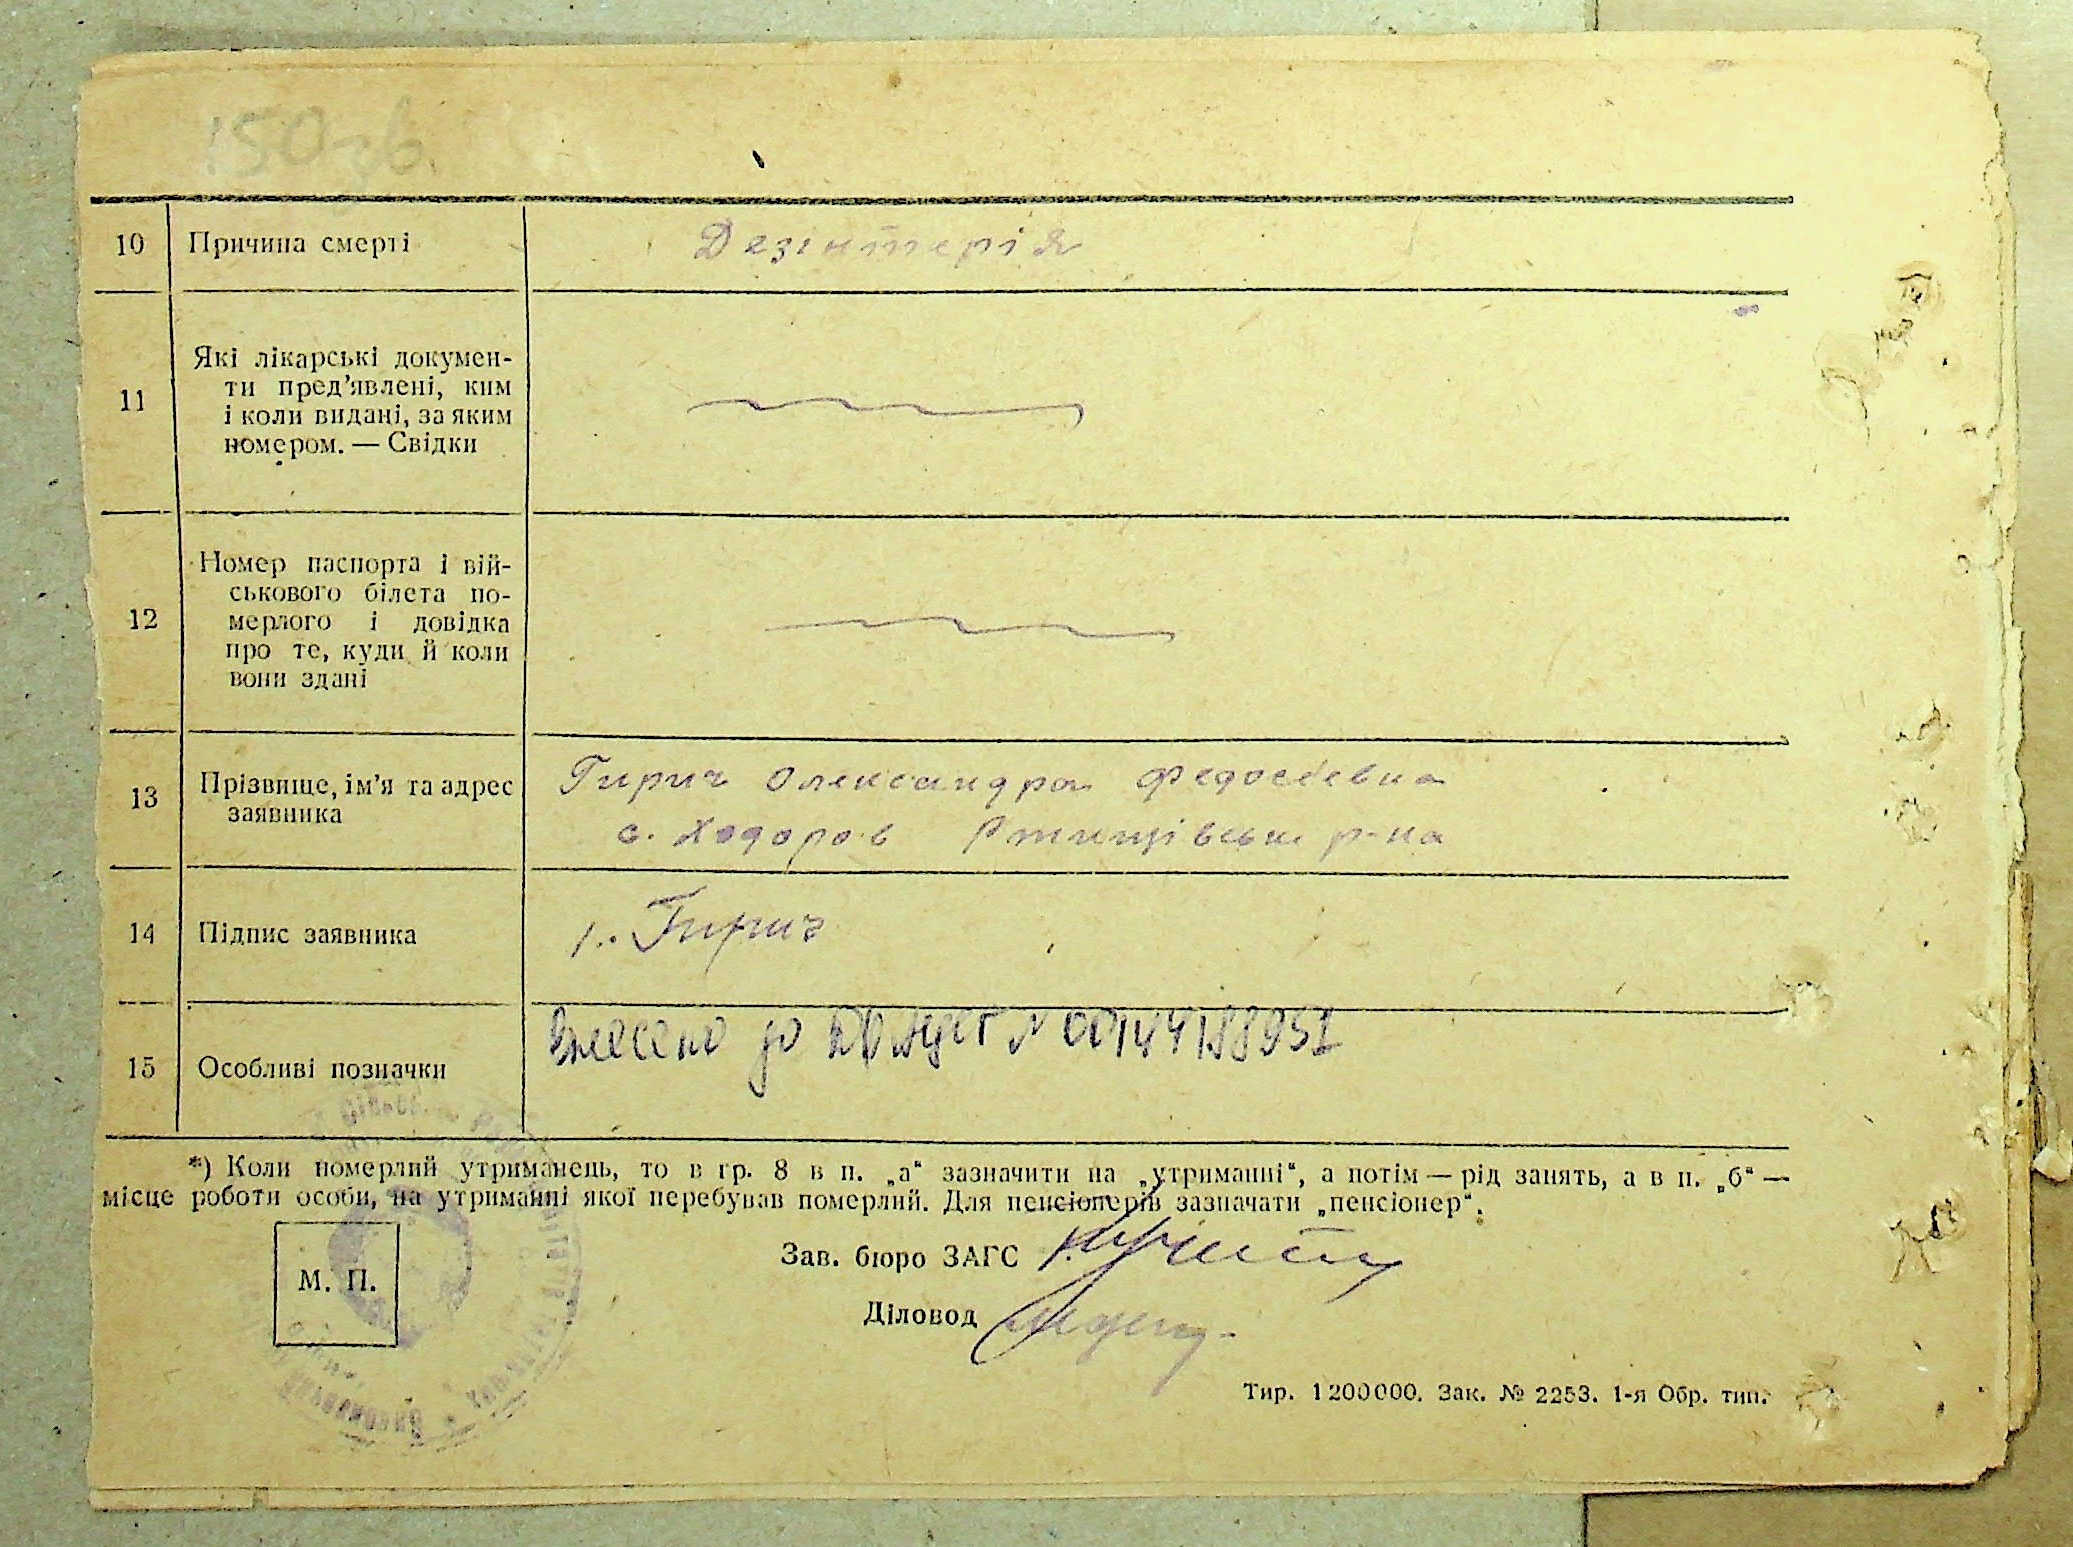 150 зв.
10 Причина смерті Дезінтерія
11 Які лікарські докумен-
ти пред’явлені, ким
і коли видані, за яким
номером. — Свідки
12 Номер паспорта і вій-
ськового білета по-
мерлого і довідка
про те, куди й коли
вони здані
13 Прізвище, ім’я та адрес
заявника
Гирич Олександра Федосіевна
с. Ходоров Ржищівськ р-на
14 Підпис заявника Гирич
15 Особливі позначки
Внесено до ДРАЦСГ N 00144188951
*) Коли померлий утриманець, то в гр. 8 в п. „а“ зазначити на „утриманні“, а потім — рід занять, а в п. „б“ —
місце роботи особи, на утриманні якої перебував померлий. Для пенсіонерів зазначати „пенсіонер“.
М. П.
Зав. бюро ЗАГС
Діловод
Тир. 1200000. Зак. № 2253. 1-я Обр. тип.